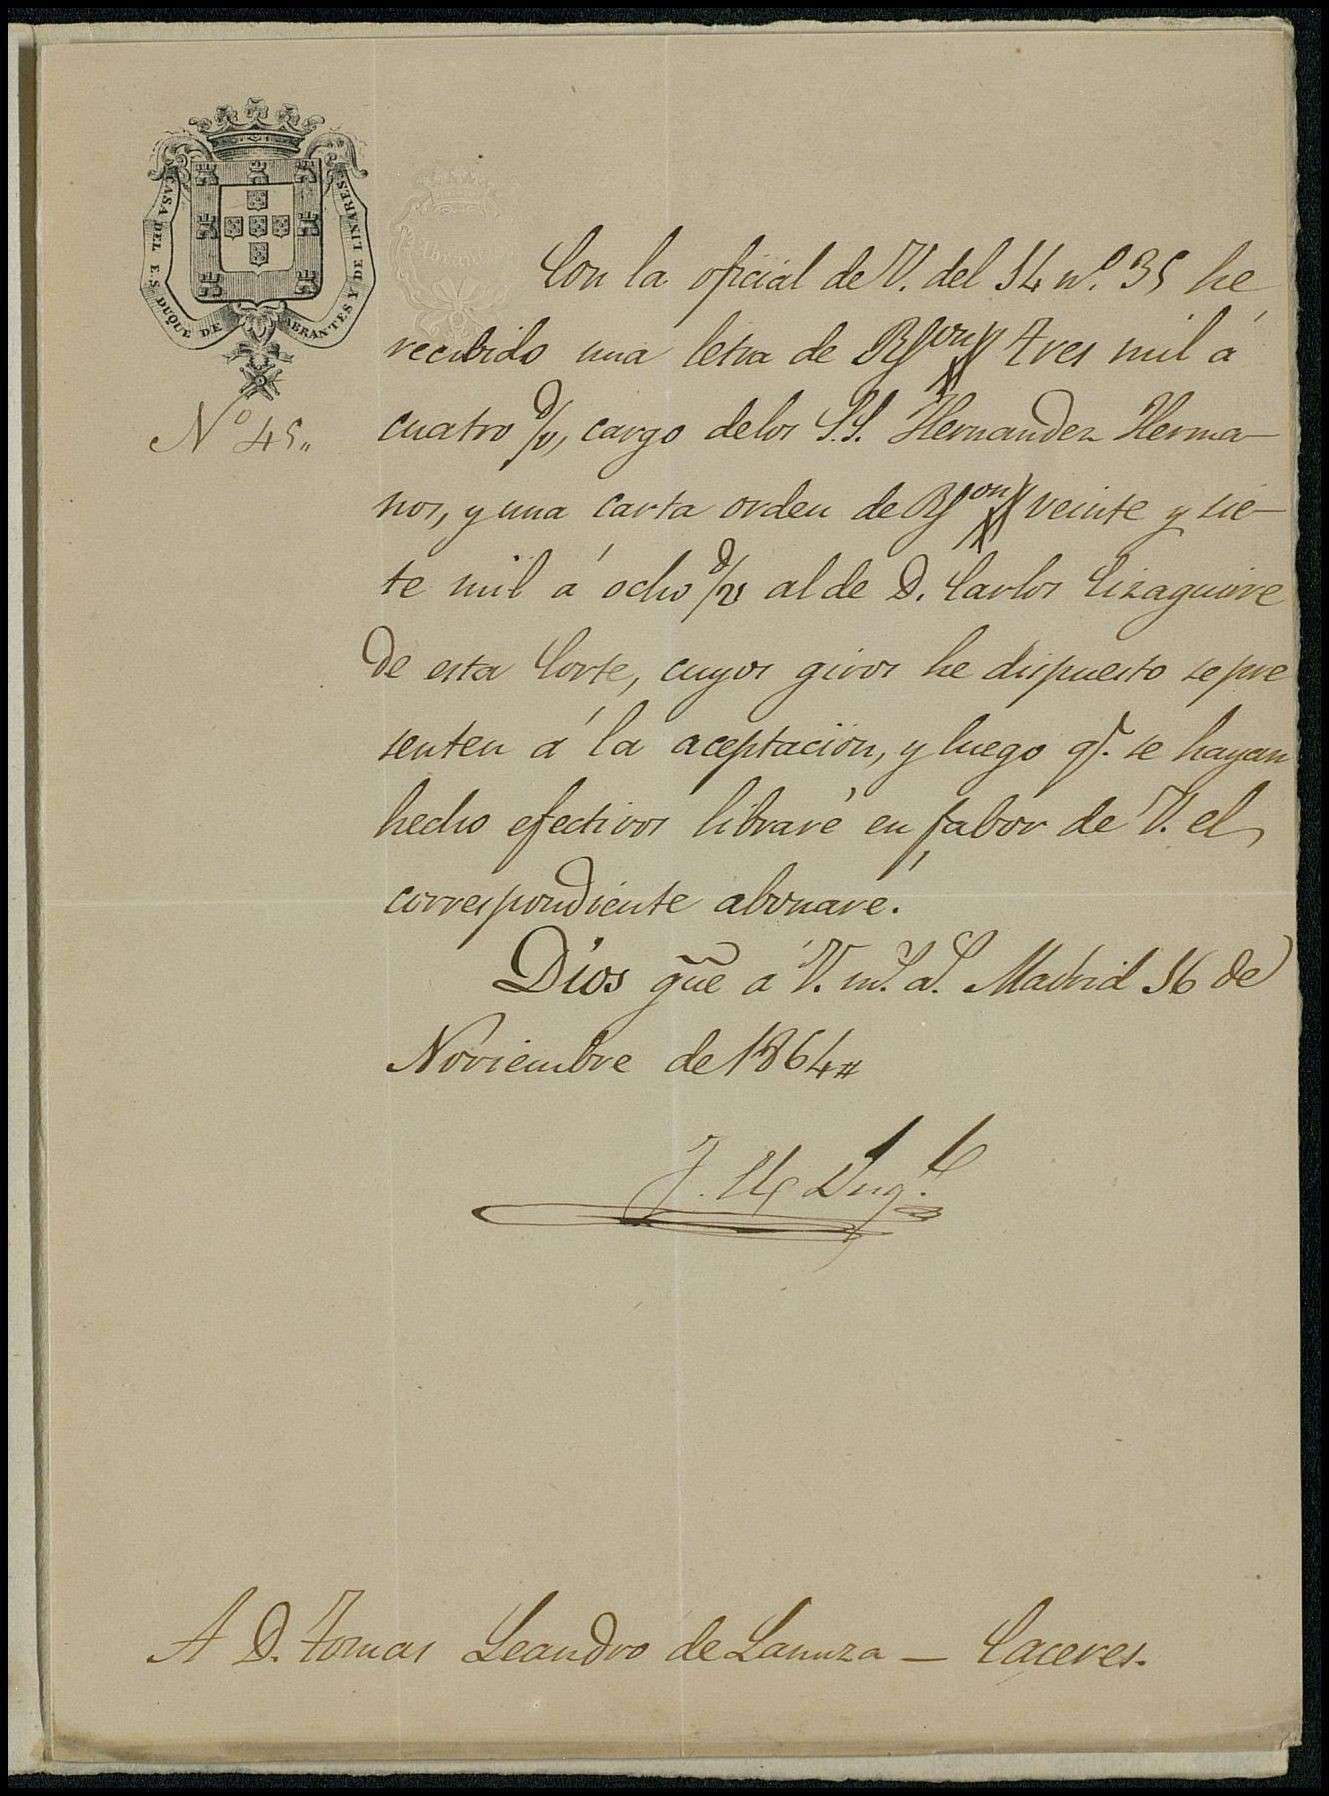 CASA DEL E.S. DUQUE DE ABRANTES Y DE LINARES
Nº 45„
Con la oficial de V. del 14 nº. 35 he
recibido una letra de Rs.on tres mil á
cuatro d/v, cargo de los S.S. Hernandez Herma-
nos, y una carta orden de Rs.on veinte y sie-
te mil á ocho d/v al de D. Carlos Eizaguirre
de esta Corte, cuyos giros he dispuesto se pre
senten á la aceptación, y luego q.e se hayan
hecho efectivos libraré en fabor de V. el
correspondiente abonaré.
Dios gũe á V. m.s a.s Madrid 16 de
Noviembre de 1864
A D. Tomas Leandro de Lanuza — Caceres.